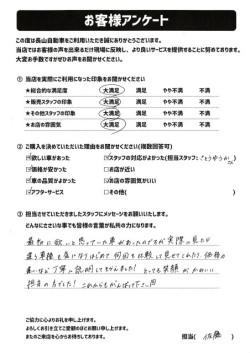 お客様アンケート
この度は長山自動車をご利用いただき誠にありがとうございます。
当店ではお客様の声を出来るだけ現場に反映し、より良いサービスを提供することに努めております。
大変お手数ですがぜひお声をお聞かせください。
① 当店を実際にご利用になった印象をお聞かせください
★総合的な満足度 大満足 満足 やや不満 不満
★販売スタッフの印象 大満足 満足 やや不満 不満
★その他スタッフの印象 大満足 満足 やや不満 不満
★お店の雰囲気 大満足 満足 やや不満 不満
② ご購入を決めていただいた理由をお聞かせください(複数回答可)
☑欲しい車があった ☑スタッフの対応がよかった(担当スタッフ:さとうゆうかさん)
☑価格が安かった □お店が近い
☑車が良かった ☑お店の雰囲気がいい
☑アフターサービス □その他( )
③ 担当させていただきましたスタッフにメッセージをお願いいたします。
どんなにささいな事でも皆様の言葉が私共の力になります。
最初に欲しいと思っていた車があったのですが実際に見たら
違う車種も気になりはじめて何回も比較して見せてくれたり、価格の
違いなど丁寧に説明してもらえました! とっても笑顔がかわいい
担当の方でした! これからもがんばって下さい
ご協力に心よりお礼を申し上げます。
よろしくお引き立てご愛顧のほどお願い申し上げます。
またのご来店を心からお待ちしております。
担当( 佐藤 )